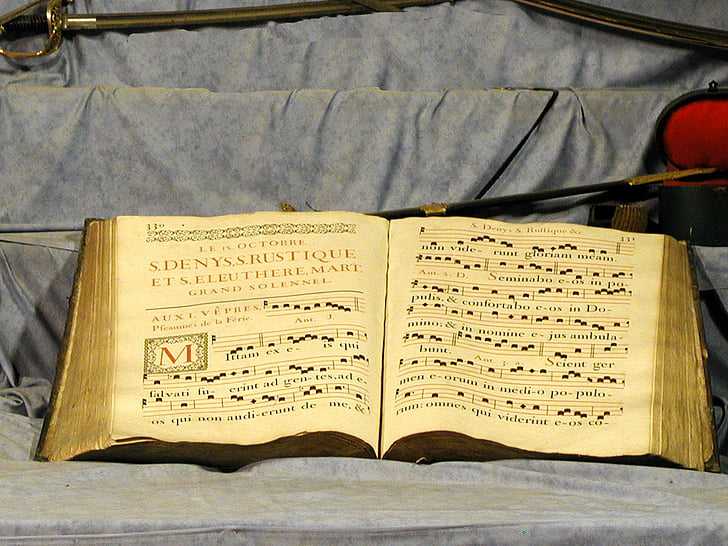 130
LE IX. OCTOBRE.
S. DENYS, S. RUSTIQUE
ET S. ELEUTHERE, MART.
GRAND SOLENNEL.
AUX I. VÊPRES,
Pseaumes de la Férie. Ant. 1.
MIttam ex e- is qui
salvati fu- erint ad gen- tes, ad e-
os qui non audi- erunt de me, &
S. Denys, S. Rustique &c. 131
non vide- runt gloriam meam.
Ant. 2. D. Seminabo e- os in po-
pulis, & confortabo e- os in Do-
mino: & in nomine e- jus ambula-
bunt. Ant. 3. Scient ger-
men e- orum in medi- o po- pulo-
rum: omnes qui viderint e- os co-